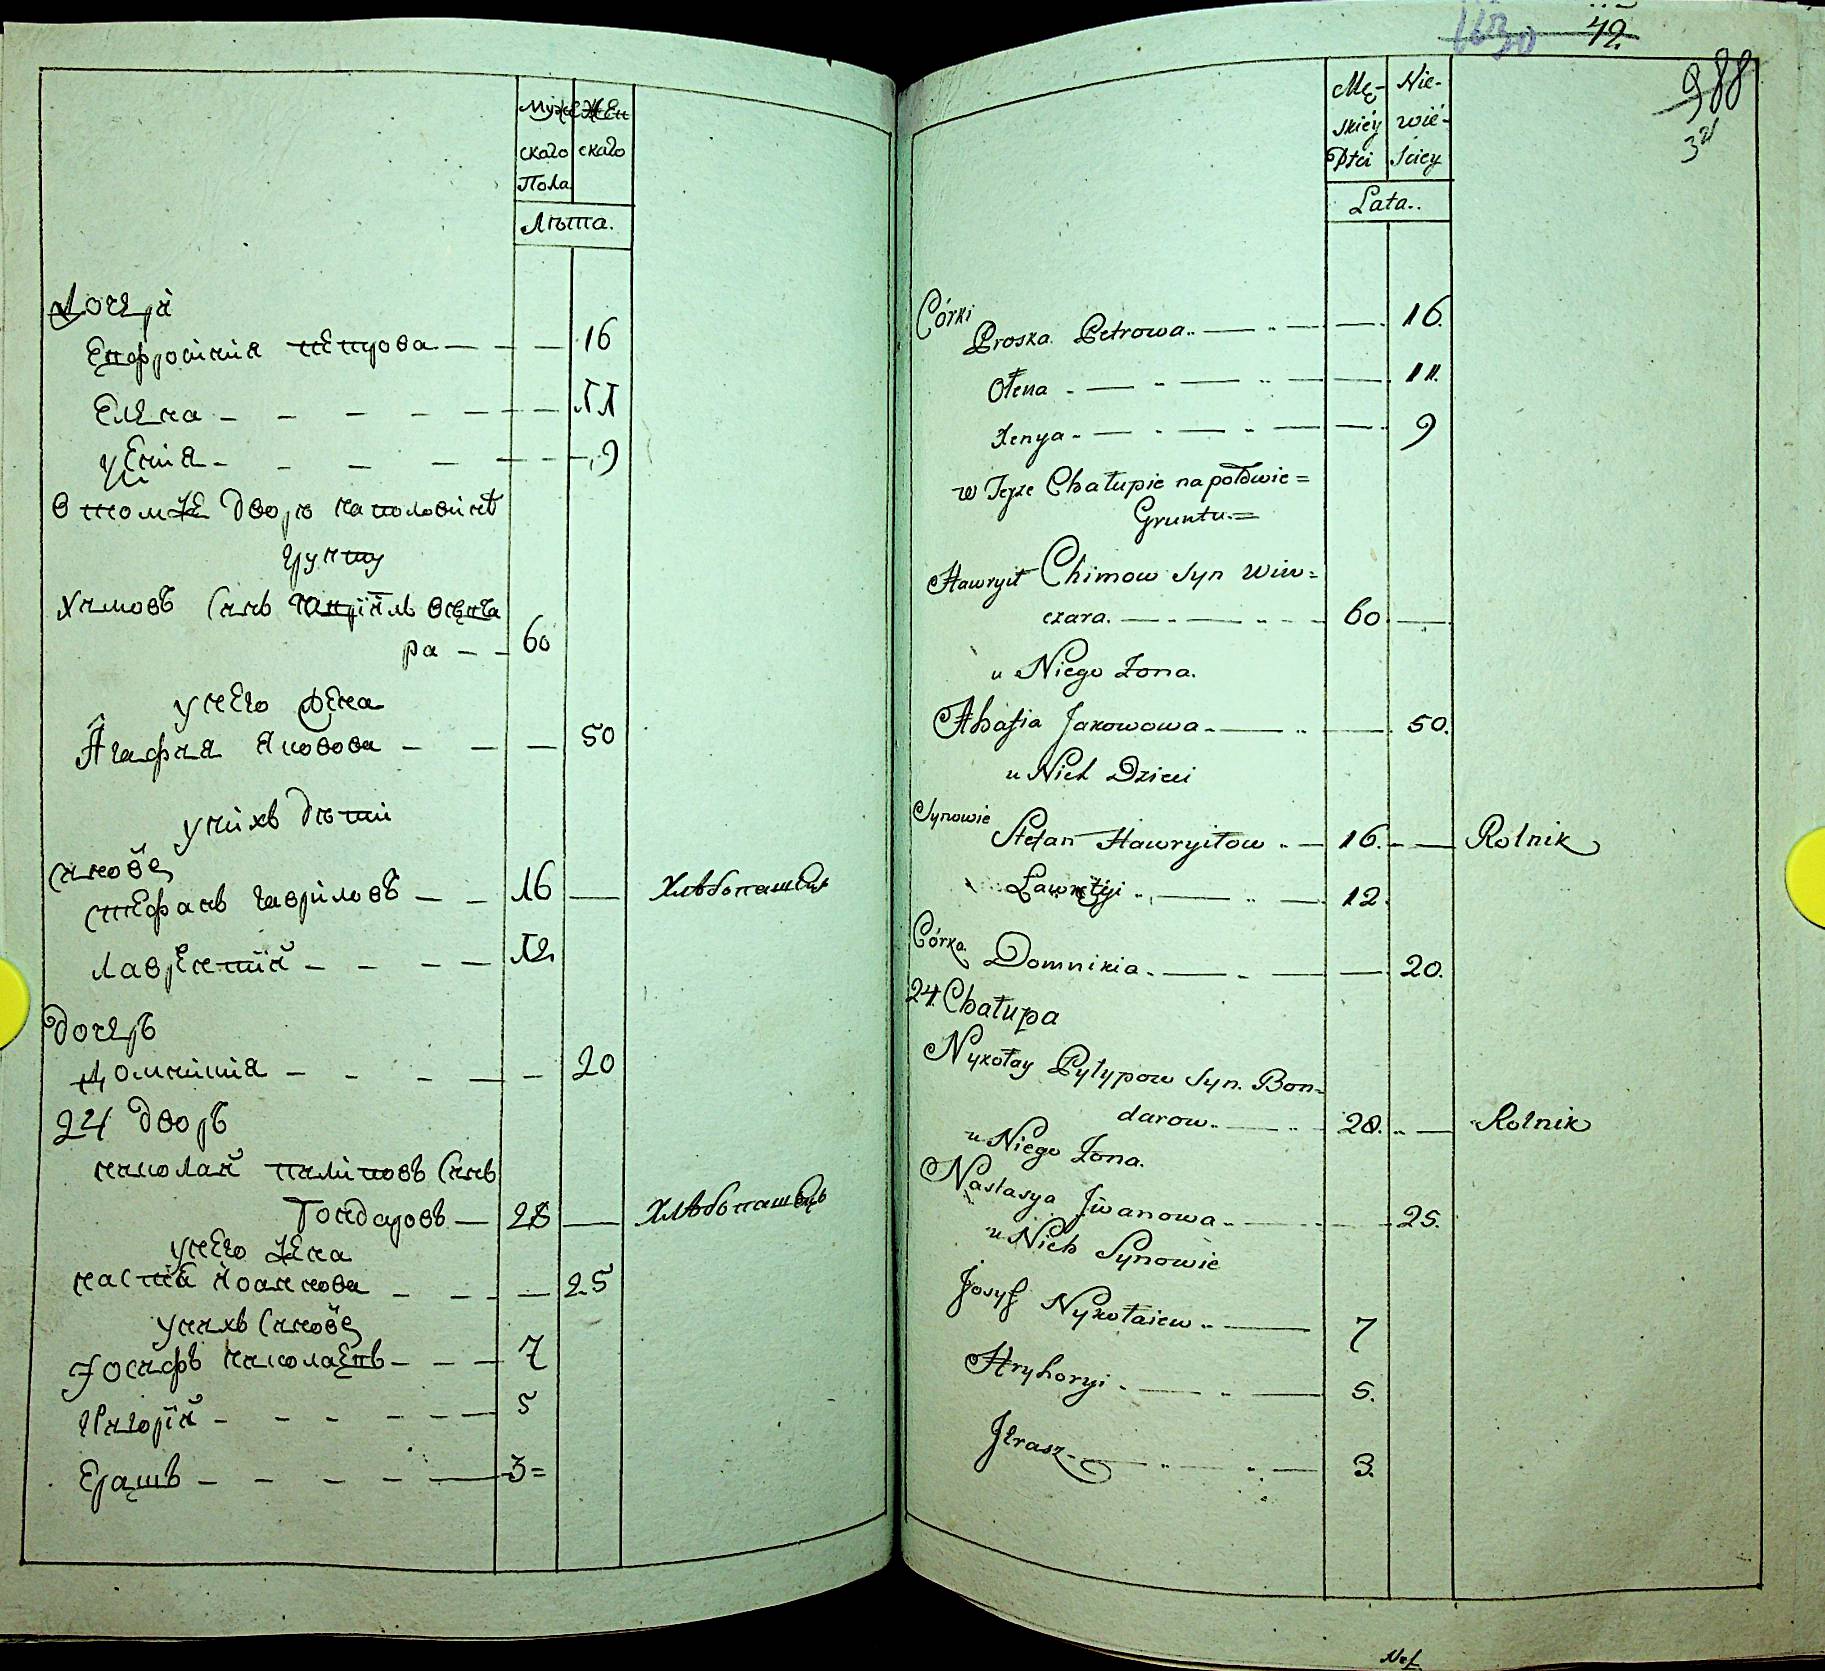 Муже Жен
скаго скаго
Пола
Лѣта.
дочери
Епфросиния петрова — — — 16
Елена — — — — — 11
уксения — — — — — 9
в томже дворѣ наполовинѣ
грунту
Химовъ синъ Гаприилъ Вевча
ра — — 60
у него жена
Агафия Яковова — — — 50
у нихъ дети
синове
стефанъ гавриловъ — — 16 — Хлѣбопашецъ
лаврентий — — — — 12
дочерь
Домникия — — — — — 20
24 дворъ
николай пилиповъ синъ
Бондаровъ — 28 — Хлѣбопашецъ
у него жена
настия иоаннова — — — — 25
у нихъ синове
Иосифъ николаевъ — — — 7
Григорий — — — — — 5
Ерашъ — — — — — 3=
42
988
Mę- Nie-
skiéy wié-
Płci sciey
Lata..
Córki
Proska Petrowa.. — — — 16.
Ołena — — — — 11.
Xenya — — — — 9
w Teyże Chałupie na połowie=
Gruntu.=
Hawryił Chimow Syn Wiw=
czara. — — — 60 —
u Niego Żona.
Ahafia Jakowowa — — — 50.
u Nich Dzieci
Synowie
Stefan Hawryiłow — 16. — Rolnik
Ławrętyi — — — 12.
Córka.
Domnikia — — — 20.
24. Chałupa
Nykołay Pyłypow Syn. Bon=
darow — — 28. — Rolnik
u Niego Żona.
Nastasya Jwanowa — — 25.
u Nich Synowie
Josyf Nykołaiew — — 7
Hryhoryi — — — 5.
Jłrasz — — — 3.